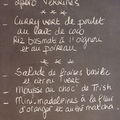 - Apéro VERRINES
- Curry vert de poulet
au lait de coco
Riz basmati à l'oignon
et au poireau
- Salade de fraises basilic
et citron vert
- Mousse au choc' de Trish
- Mini madeleines à la fleur
d'oranger et au thé matcha